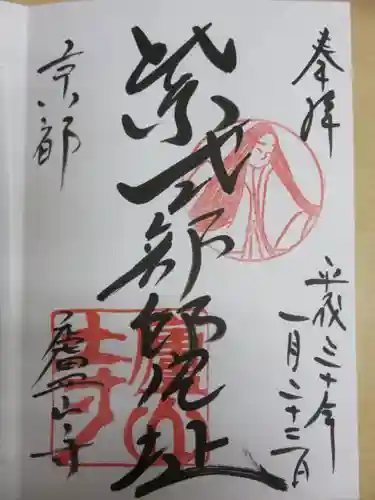 奉拝
平成三十年
一月二十二日
紫式部邸宅址
京都
廬山寺
廬山寺